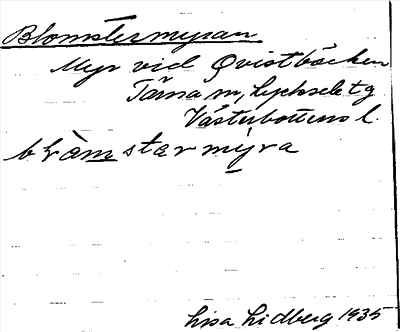 Blomstermyran
Myr vid Qvistbäcken
Tärna sn, Lycksele tg
Västerbottens l.
blòmstermyra
Lisa Lidberg 1935